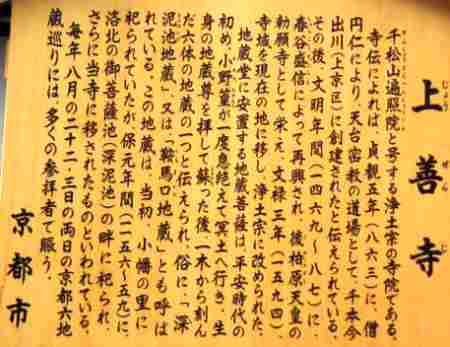 上善寺
じょうぜんじ
千松山遍照院と号する浄土宗の寺院である。
寺伝によれば、貞観五年（八六三）に、僧
円仁により、天台密教の道場として、千本今
出川（上京区）に創建されたと伝えられている。
その後、文明年間（一四六九～八七）に、
春谷盛信によって再興され、後柏原天皇の
勅願寺として、栄え、文禄三年（一五九四）、
寺域を現在の地に移し、浄土宗に改められた。
地蔵堂に安置する地蔵菩薩は、平安時代の
初め、小野篁が一度息絶えて冥土へ行き、生
身の地蔵尊を拝して蘇った後、一木から刻ん
だ六体の地蔵の一つと伝えられ、俗に、「深
泥池地蔵」、又は「鞍馬口地蔵」とも呼ば
れている。この地蔵は、当初、小幡の里に
祀られていたが、保元年間（一一五六～五九）に、
洛北の御菩薩池（深泥池）の畔に祀られ、
さらに当寺に移されたものといわれている。
毎年八月の二十二・三日の両日の京都六地
蔵巡りには、多くの参拝者で賑う。
京都市